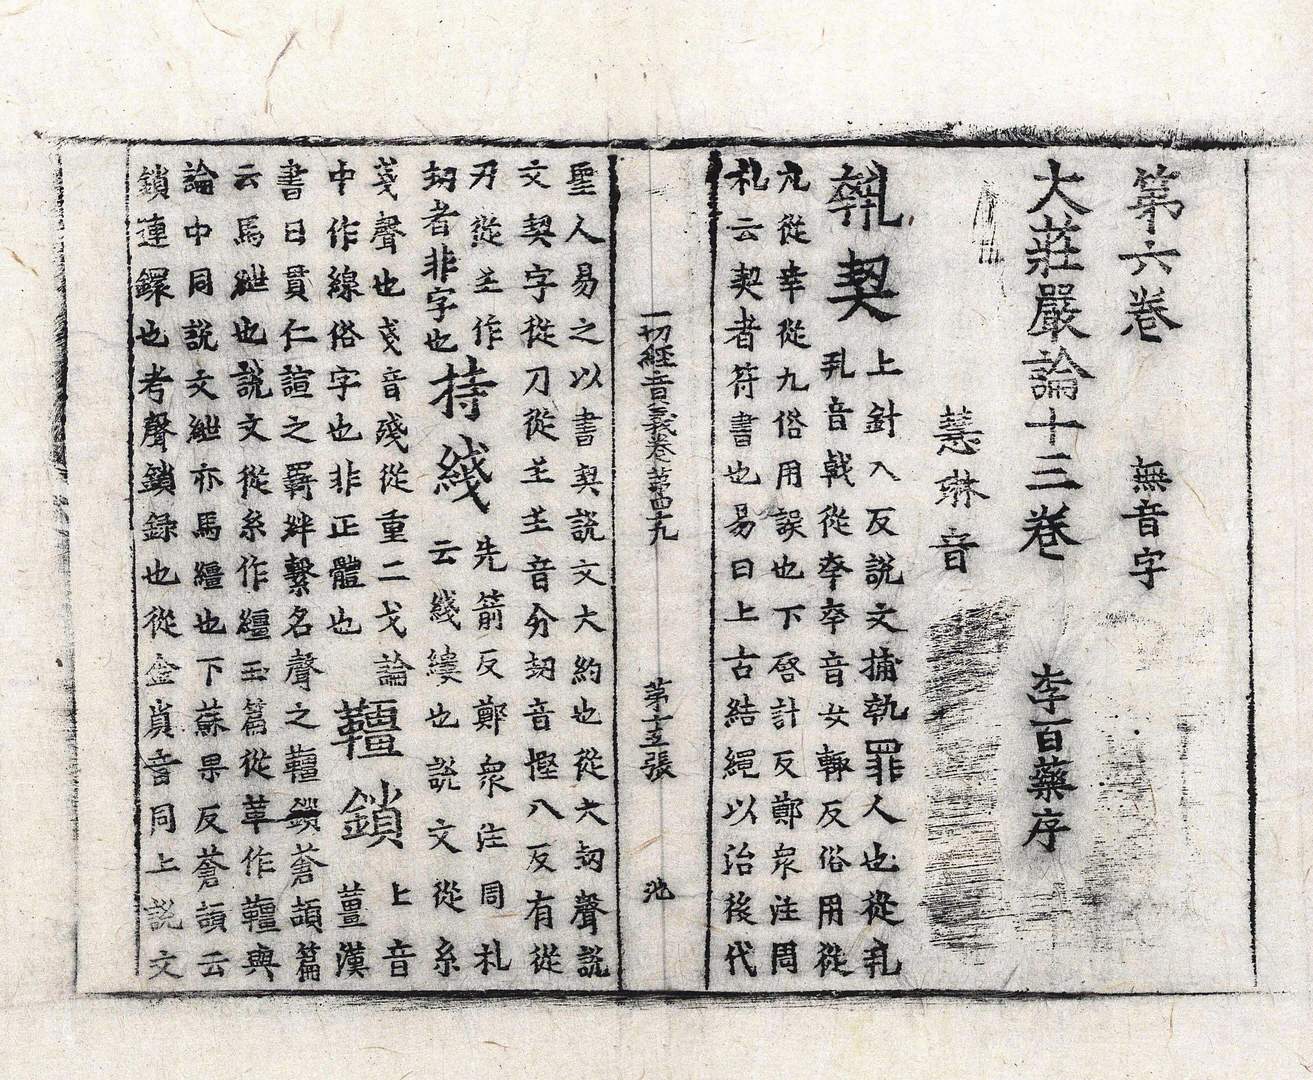 第六卷 無音字
大莊嚴論十三卷 李百藥序
慧琳音
執契
上針入反説文捕執罪人也從丮
丮音戟從㚔㚔音女輒反俗用從
丸從幸從九俗用誤也下啓計反鄭衆注周
札云契者符書也易曰上古結繩以治後代
一切經音義卷第四十九 第十五張 池
聖人易之以書契説文大約也從大㓞聲説
文契字從刀從丯丯音介㓞音慳八反有從
刃從丯作
㓞者非字也
持綫
先箭反鄭衆注周札
云綫縷也説文從糸
戔聲也戔音殘從重二戈論
中作線俗字也非正體也
韁鎖
上音
薑漢
書曰貫仁誼之羇絆繫名聲之韁鎖蒼頡篇
云馬紲也説文從糸作繮玉篇從革作韁與
論中同説文紲亦馬繮也下蘇果反蒼頡云
鎖連鐶也考聲鎖録也從金𧴪音同上説文